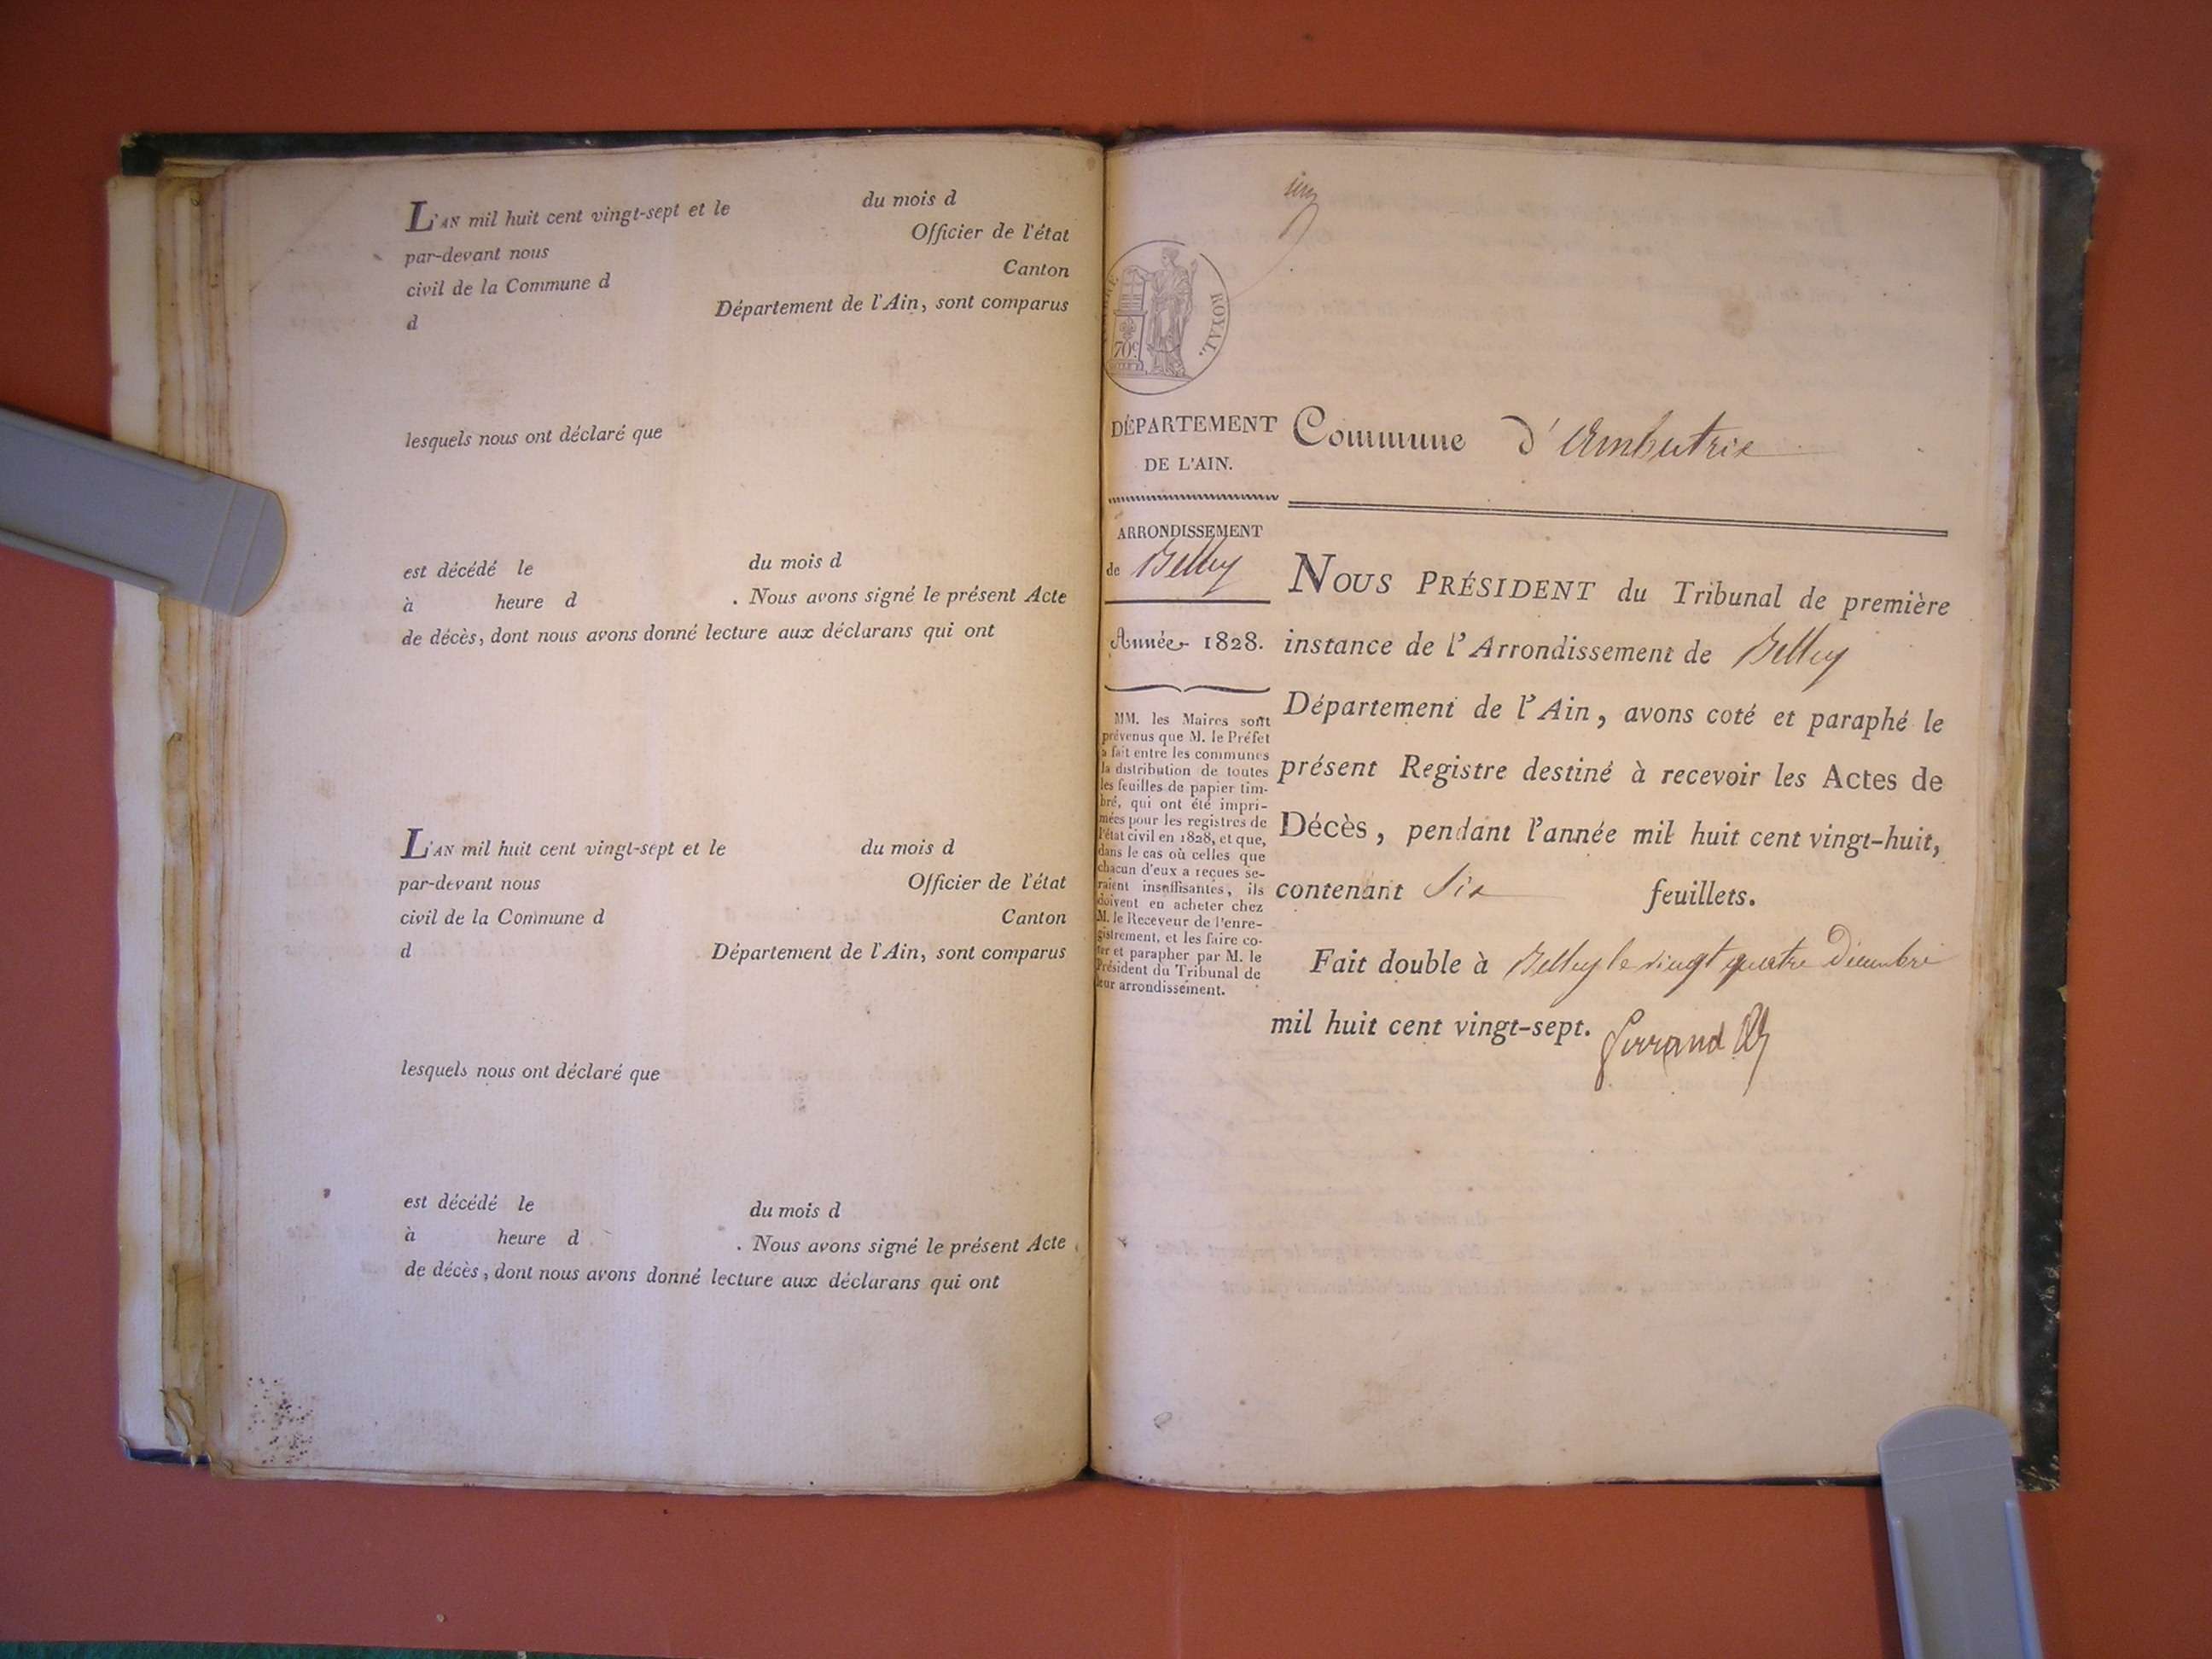 L'AN mil huit cent vingt-sept et le du mois d
par-devant nous Officier de l'état
civil de la Commune d Canton
d Département de l'Ain, sont comparus
lesquels nous ont déclaré que
est décédé le du mois d
à heure d . Nous avons signé le présent Acte
de décès, dont nous avons donné lecture aux déclarans qui ont
L'AN mil huit cent vingt-sept et le du mois d
par-devant nous Officier de l'état
civil de la Commune d Canton
d Département de l'Ain, sont comparus
lesquels nous ont déclaré que
est décédé le du mois d
à heure d . Nous avons signé le présent Acte
de décès, dont nous avons donné lecture aux déclarans qui ont
ROYAL.
70c
DÉPARTEMENT
DE L'AIN.
ARRONDISSEMENT
de Belley
Année 1828.
MM. les Maires sont
prévenus que M. le Préfet
a fait entre les communes
la distribution de toutes
les feuilles de papier tim-
bré, qui ont été impri-
mées pour les registres de
l'état civil en 1828, et que,
dans le cas où celles que
chacun d'eux a reçues se-
raient insuffisantes, ils
doivent en acheter chez
M. le Receveur de l'enre-
gistrement, et les faire co-
ter et parapher par M. le
Président du Tribunal de
leur arrondissement.
Commune d'Ambutrix
NOUS PRÉSIDENT du Tribunal de première
instance de l'Arrondissement de Belley
Département de l'Ain, avons coté et paraphé le
présent Registre destiné à recevoir les Actes de
Décès, pendant l'année mil huit cent vingt-huit,
contenant Six feuillets.
Fait double à Belley le vingt quatre Décembre
mil huit cent vingt-sept.